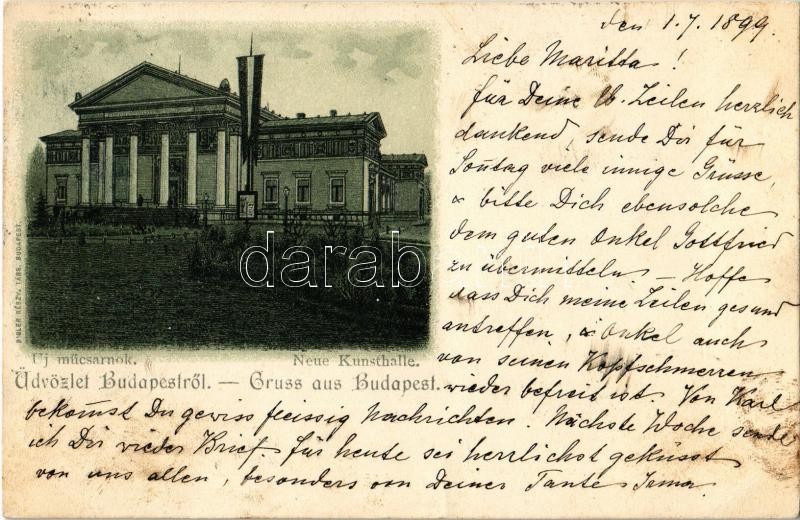 den 1.7.1899.
Liebe Maritta!
für Deine lb. Zeilen herzlich
dankend, sende Dir für
Sontag viele innige Grüsse,
& bitte Dich ebensolche
dem guten Onkel Gottfried
zu übermitteln. — Hoffe
dass Dich meine Zeilen gesund
antreffen, & Onkel auch
von seinen Kopfschmerzen
wieder befreit ist. Von Karl
bekomst Du gewiss fleissig Nachrichten. Nächste Woche sende
ich Dir wieder Brief. für heute sei herzlichst geküsst
von uns allen, besonders von Deiner Tante Irma.
Uj műcsarnok. Neue Kunsthalle.
Üdvözlet Budapestről. — Gruss aus Budapest.
RIGLER RÉSZV. TÁRS. BUDAPEST.
darabanth